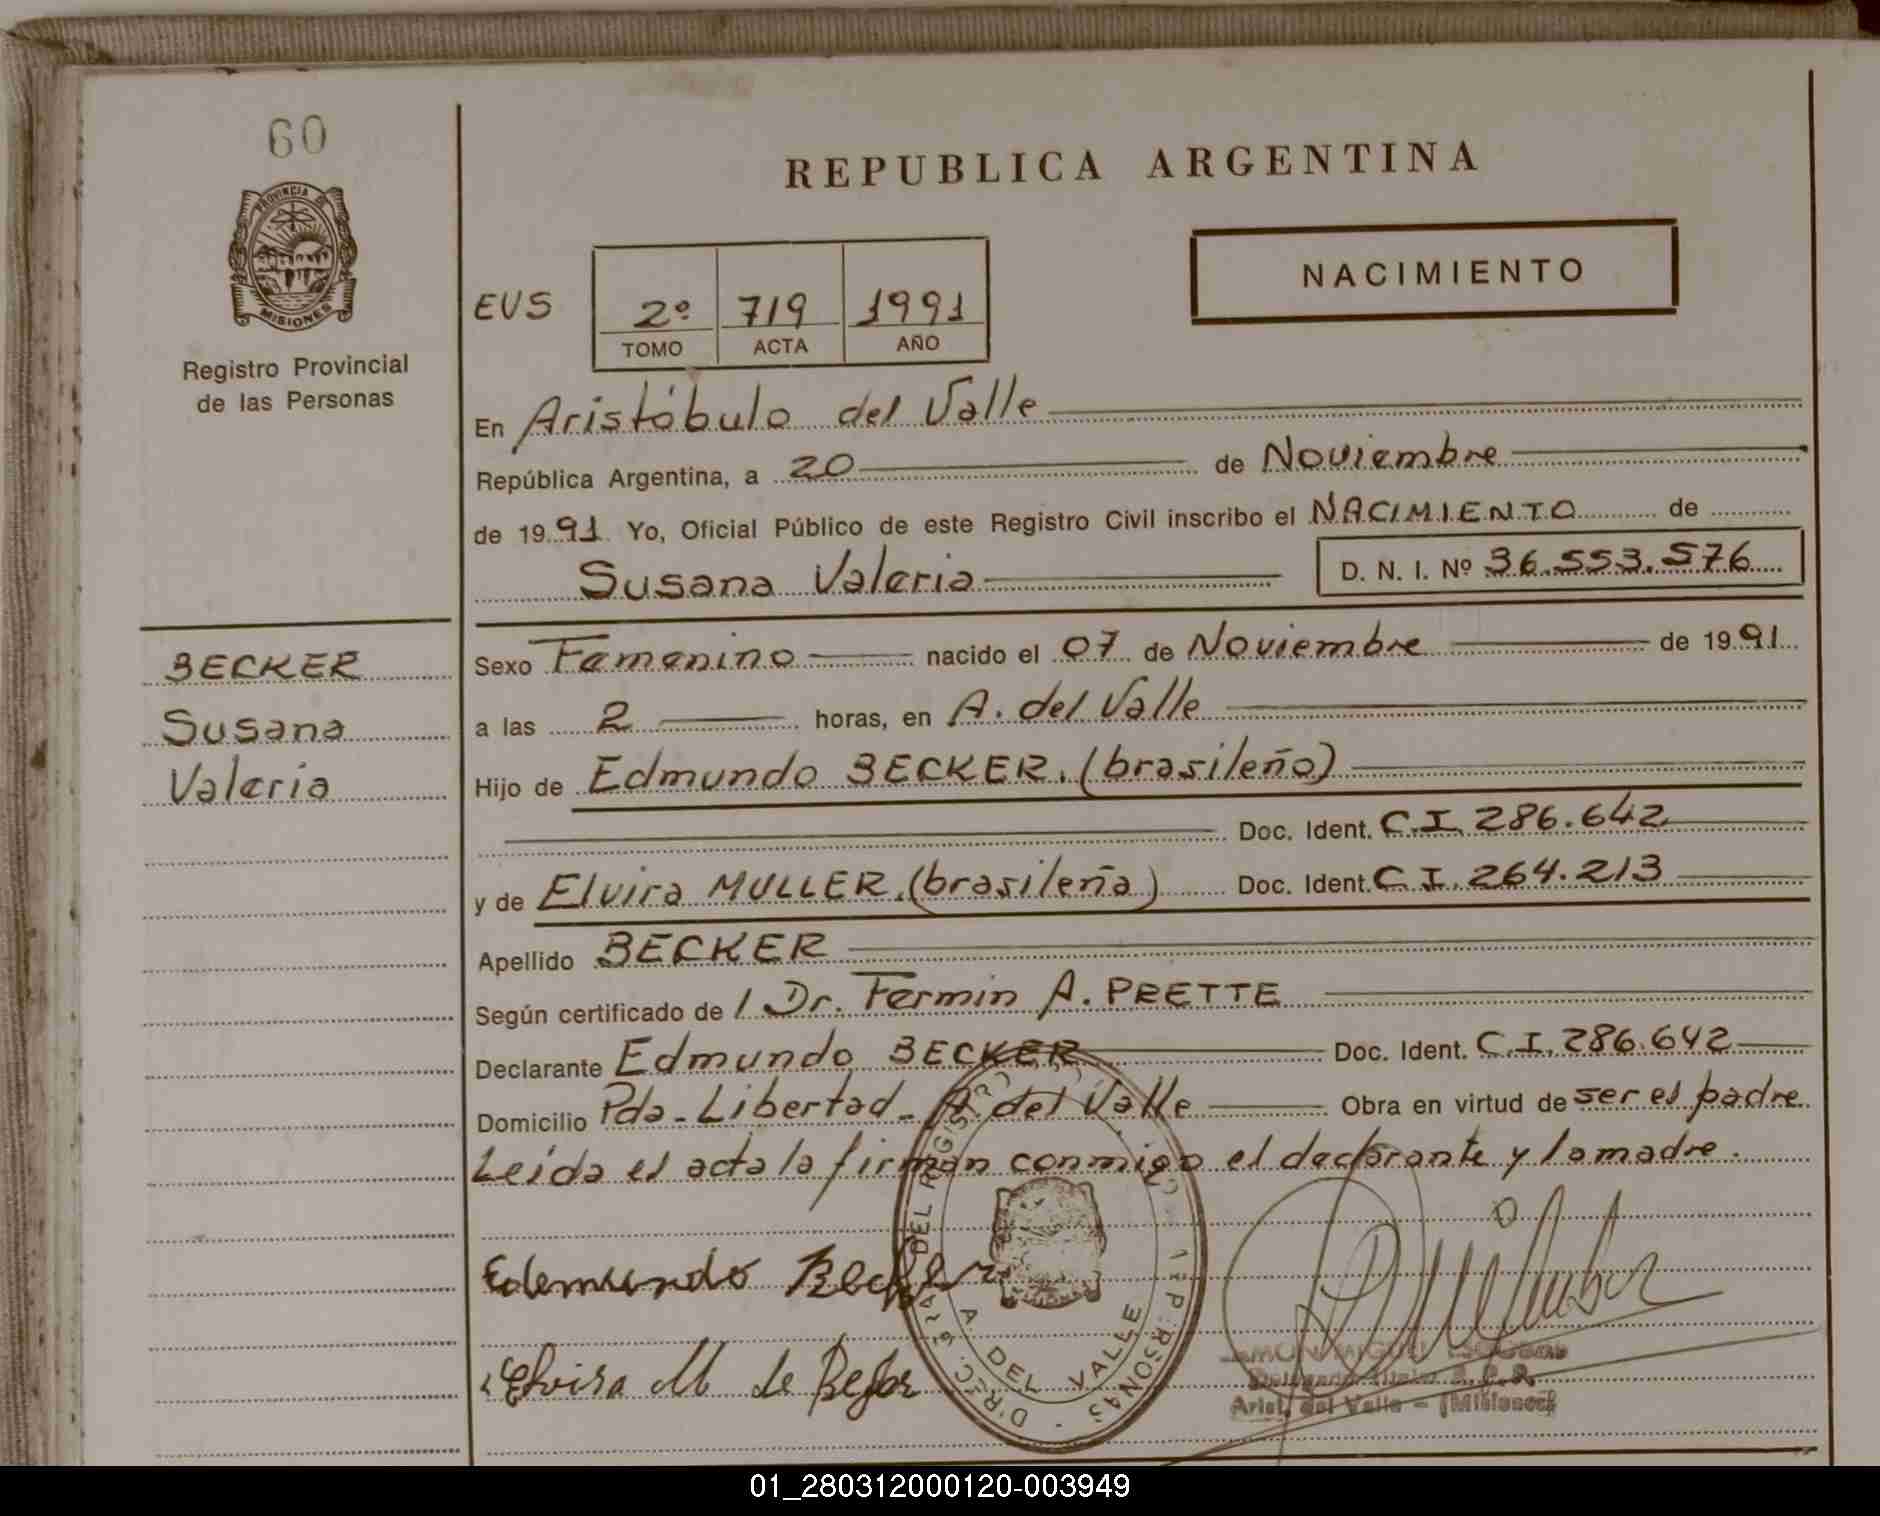 60
PROVINCIA DE
MISIONES
Registro Provincial
de las Personas
BECKER
Susana
Valeria
REPUBLICA ARGENTINA
NACIMIENTO
EVS
2º 719 1991
TOMO ACTA AÑO
En Aristóbulo del Valle
República Argentina, a 20 de Noviembre
de 1991 Yo, Oficial Público de este Registro Civil inscribo el NACIMIENTO de
Susana Valeria D. N. I. Nº 36.553.576
Sexo Femenino nacido el 07 de Noviembre de 1991
a las 2 horas, en A. del Valle
Hijo de Edmundo BECKER. (brasileño)
Doc. Ident. C.I. 286.642
y de Elvira MULLER. (brasileña) Doc. Ident. C.I. 264.213
Apellido BECKER
Según certificado de / Dr. Fermin A. PRETTE
Declarante Edmundo BECKER Doc. Ident. C.I. 286.642
Domicilio Pda. Libertad - A. del Valle Obra en virtud de ser el padre
Leída el acta la firman conmigo el declarante y la madre.
Edemundo Becker
Elvira M de Beker
DEL REGIST
A. DEL VALLE
MIGUEL
Delegado Titular R.P.P.
Arist. del Valle - (Misiones)
01_280312000120-003949